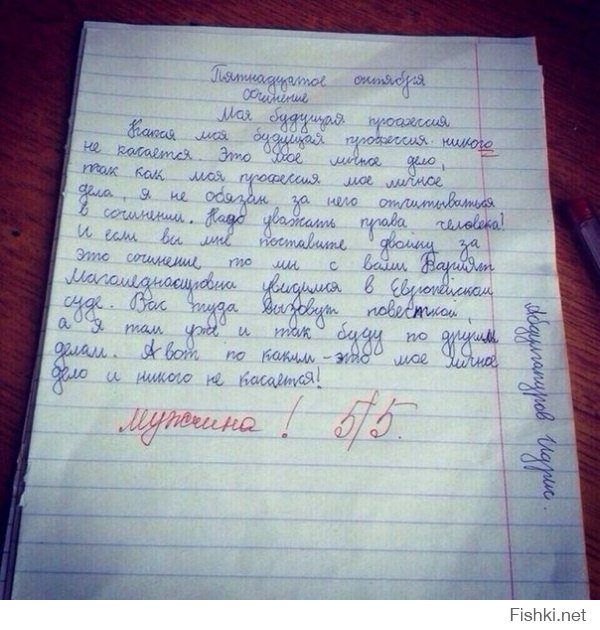 Пятнадцатое октября
Сочинение
Моя будущая профессия
Какая моя будущая профессия никого
не касается. Это мое личное дело,
так как моя профессия мое личное
дела, я не обязан за него отчитываться
в сочинении. Надо уважать права человека!
И если вы мне поставите двойку за
это сочинение то мы с вами Варият
увидимся в Европейском
суде. Вас туда вызовут повесткой,
а я там уже и так буду по другим
делам. А вот по каким - это мое личное
дело и никого не касается!
мужчина! 5/5.
Абдулгапуров Идрис.
Fishki.net